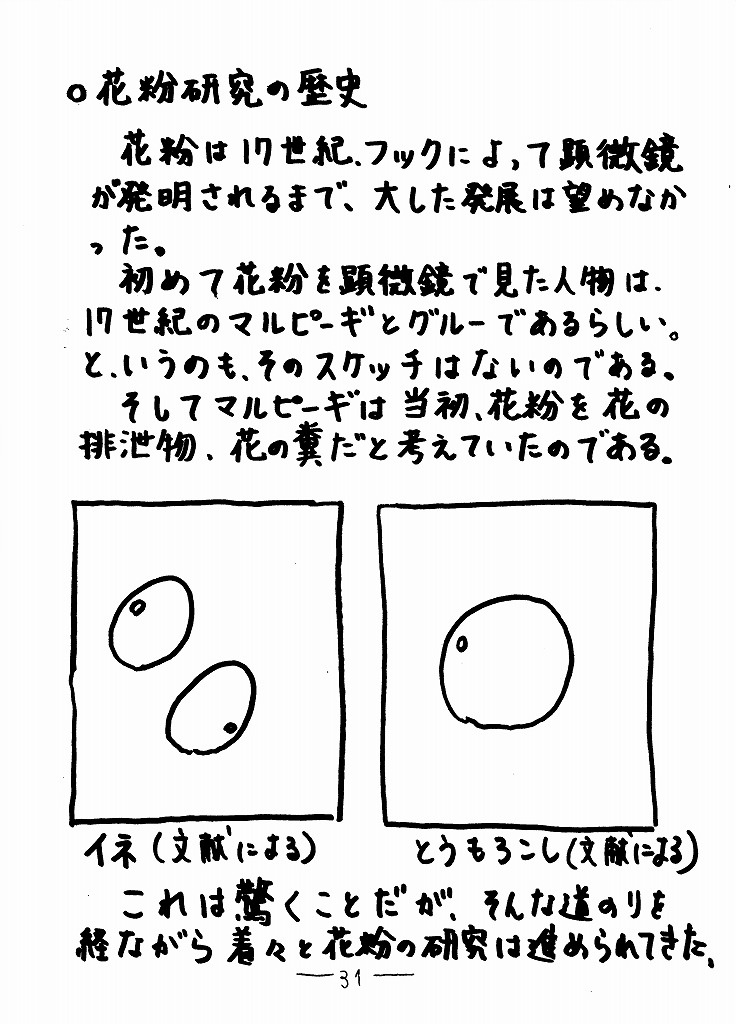 ○花粉研究の歴史
花粉は17世紀、フックによって顕微鏡
が発明されるまで、大した発展は望めなか
った。
初めて花粉を顕微鏡で見た人物は、
17世紀のマルピーギとグルーであるらしい。
と、いうのも、そのスケッチはないのである。
そしてマルピーギは当初、花粉を花の
排泄物、花の糞だと考えていたのである。
イネ(文献による)
とうもろこし(文献による)
これは驚くことだが、そんな道のりを
経ながら着々と花粉の研究は進められてきた。
— 31 —